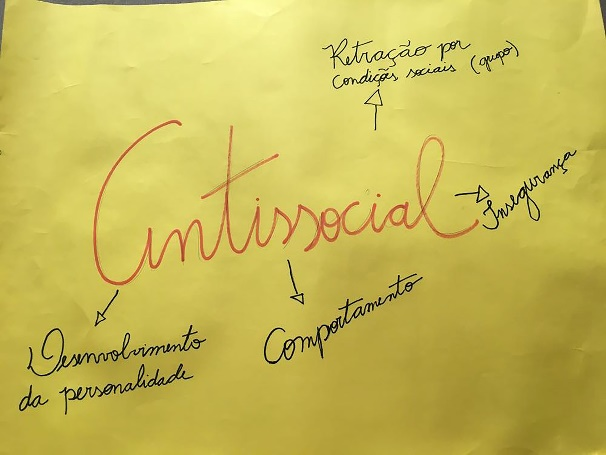 Retração por
condições sociais (grupo)
Antissocial
Insegurança
Desenvolvimento
da personalidade
Comportamento